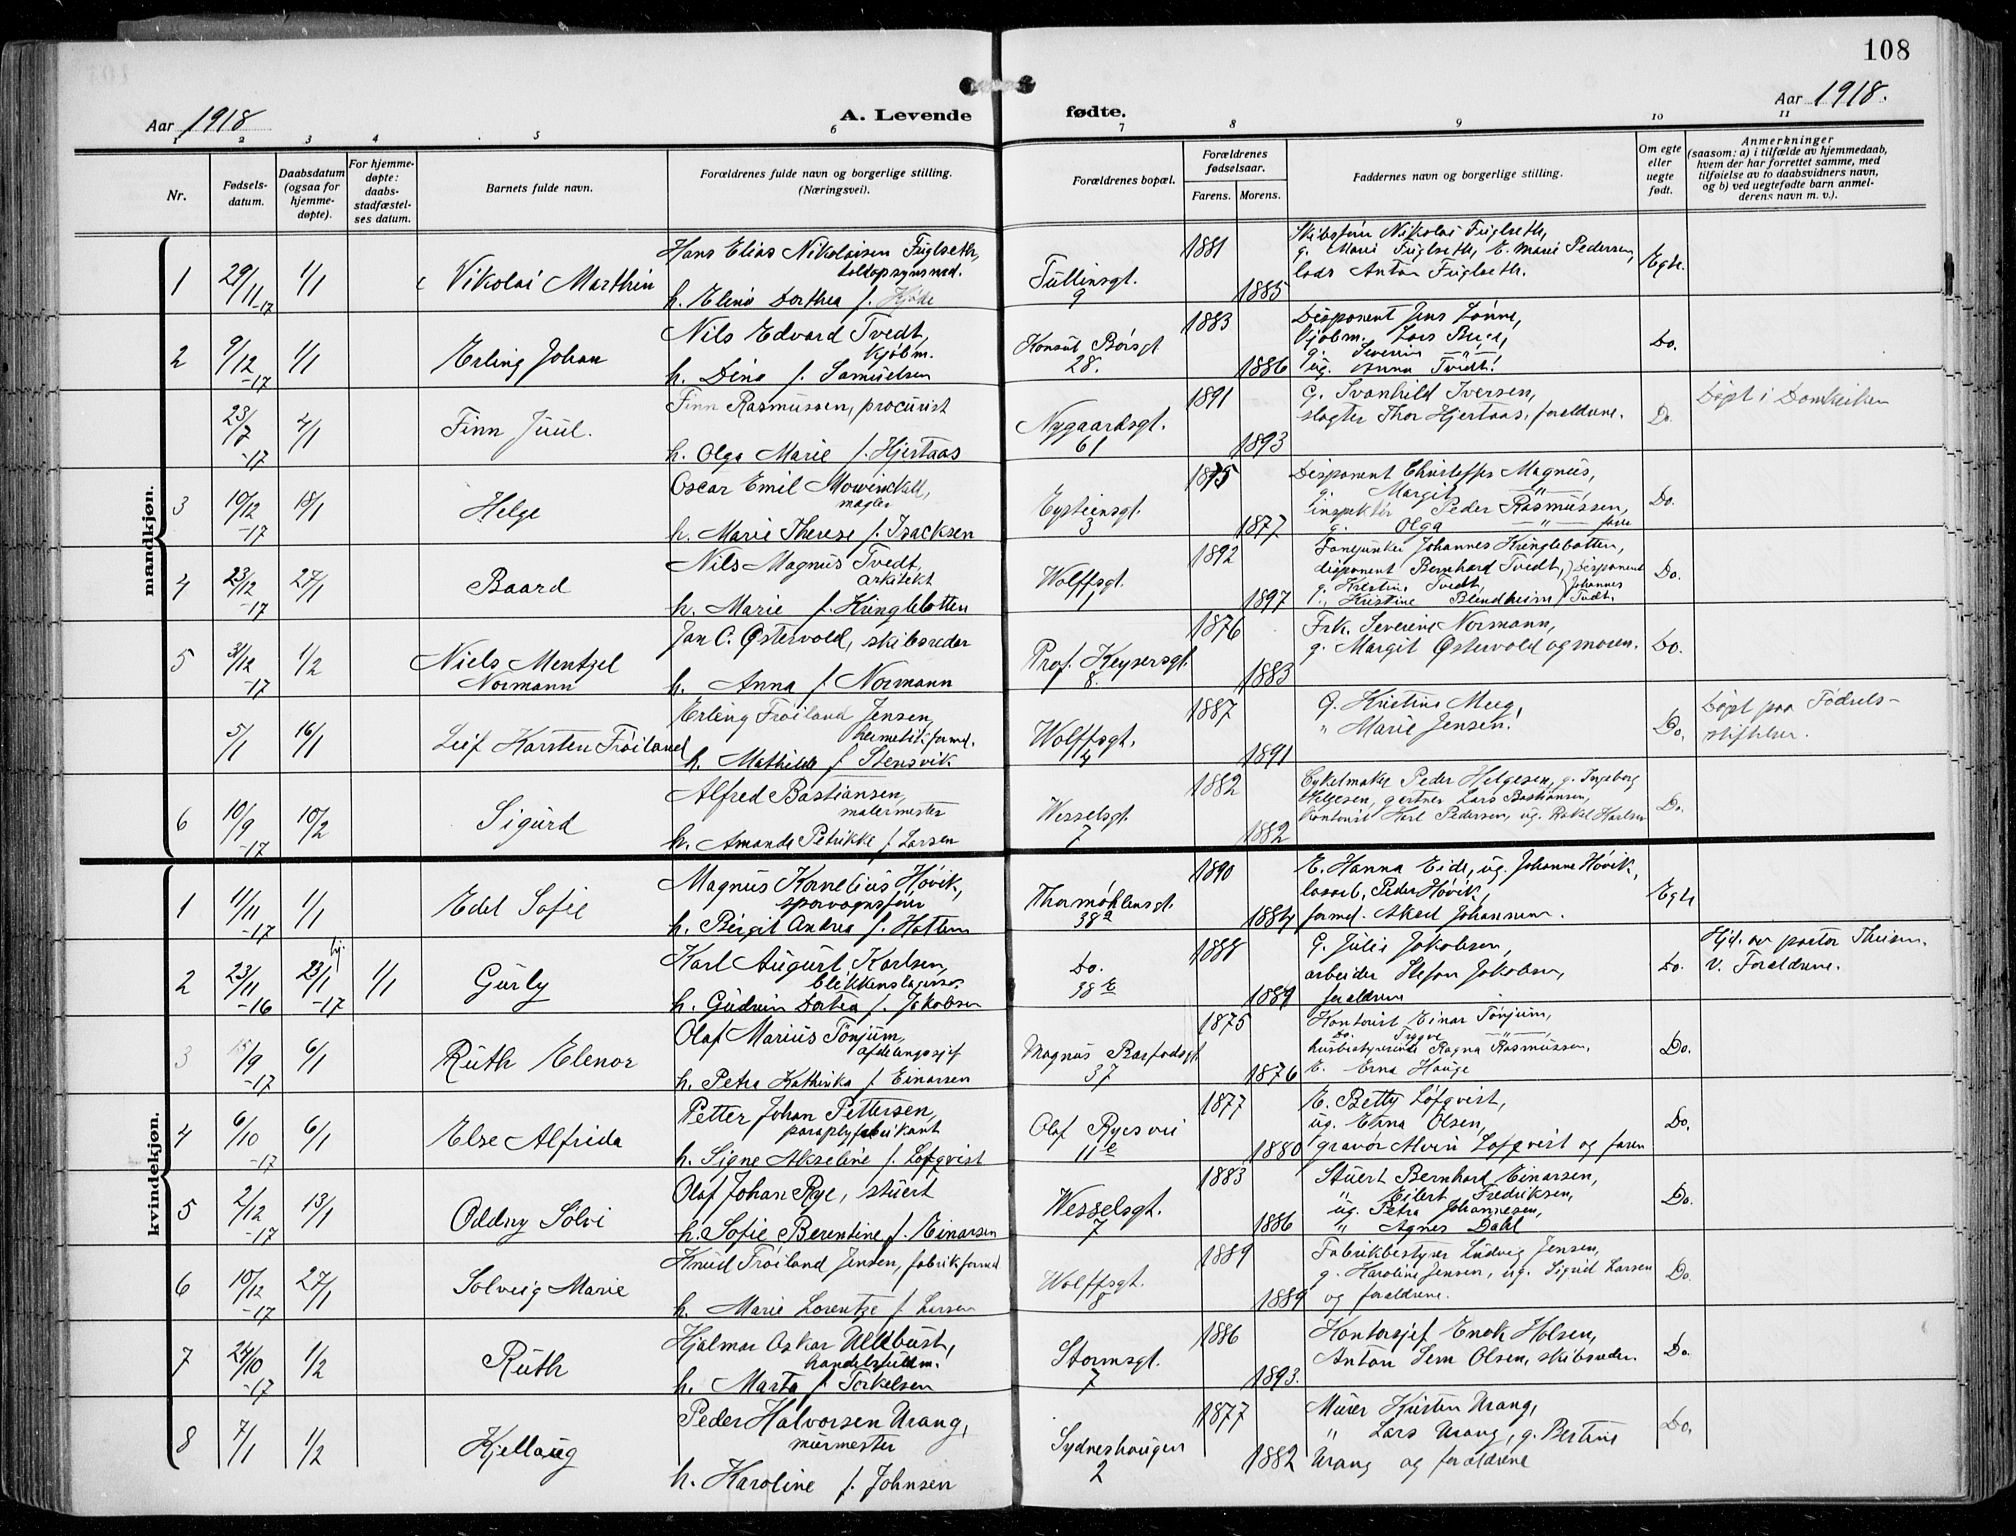 108
Aar 1918
A. Levende fødte.
Aar 1918.
1 2 3 4 5 6 7 8 9 10 11
Nr.
Fødsels-
datum.
Daabsdatum
(ogsaa for
hjemme-
døpte).
For hjemme-
døpte:
daabs-
stadfæstel-
ses datum.
Barnets fulde navn.
Forældrenes fulde navn og borgerlige stilling.
(Næringsvei).
Forældrenes bopæl.
Forældrenes
fødselsaar.
Farens. Morens.
Faddernes navn og borgerlige stilling.
Om egte
eller
uegte
født.
Anmerkninger
(saasom: a) i tilfælde av hjemmedaab,
hvem der har forrettet samme, med
tilføielse av to daabsvidners navn,
og b) ved uegtefødte barn anmel-
derens navn m. v.).
mandkjøn.
1 29/11-17 1/1 Nikolai Marthin
Hans Elias Nikolaisen Fuglseth,
toldopsynsmd.
h. Elina Dorthea f.
Tullinsgt.
9
1881
1885
Nikolai Fuglseth,
g. Marie Fuglseth, E. Marie Pedersen,
lods Anton Fuglseth.
Egte.
2 9/12-17 1/1 Erling Johan
Nils Edvard Tvedt,
kjøbm.
h. Dina f. Samuelsen
Konsul Børsgt
28.
1883
1886
Disponent Jens Lønne,
kjøbm. Lars
g. Severin — " —
ug. Anna Tvedt.
Do.
23/7-17 2/1 Finn Juul.
Finn Rasmussen, procurist
h. Olga Marie f. Hjertaas
Nygaardsgt.
61
1891
1893
G. Svanhild Iversen,
slagter Thor Hjertaas, forældrene.
Do.
Døpt i Domkirken
3 10/12-17 18/1 Helge
Oscar Emil Mowinckell,
mægler
h. Marie Therese f. Isacksen
Eysteinsgt.
3
1875
1877
Disponent Christoffer Magnus,
g. Margit — " —,
inspektør Peder Rasmussen,
g. Olga — " —
Do.
4 23/12-17 27/1 Baard
Nils Magnus Tvedt,
arkitekt
h. Marie f. Kringlebotten
Wolffsgt.
1
1892
1897
Fanejunker Johannes Kringlebotten,
disponent Bernhard Tvedt, Disponent
g. Kristine Tvedt, Johannes
" Kristine Blindheim Tvedt.
Do.
5 31/12-17 1/2 Niels Mentzel
Normann
Jan C. Østervold, skibsreder
h. Anna f. Normann
Prof. Keysersgt.
8.
1876
1883
Frk. Severine Normann,
g. Margit Østervold og moren.
Do.
5/1 16/1 Leif Karsten Frøiland
Erling Frøiland Jensen,
hermetikformd.
h. Mathilde f. Stensvik
Wolffsgt.
4
1887
1891
G. Kristine Meeg,
" Marie Jensen.
Do.
Døpt paa Fødsels-
stiftelsen.
6 10/9-17 10/2 Sigurd
Alfred Bastiansen,
malermester
h. Amanda Petrikke f. Larsen
Wesselsgt.
7
1882
1882
Cykelmaker Peder Helgesen, g. Ingeborg
Helgesen, gartner Lars Bastiansen,
kontorist Karl Pedersen, ug. Rakel Karlsen
Do.
kvindekjøn.
1 11/11-17 1/1 Edel Sofie
Magnus Kornelius Høvik,
sporvognsfører
h. Birgit Andrea f. Hatlem
Thormøhlensgt.
38a
1890
1884
E. Hanna Eide, ug. Johanne Høvik,
lossearb. Peder Høvik,
formd. Aksel Johannesen.
Egte
2 23/11-16 hj. 23/1-17 1/1 Gurly
Karl August Karlsen,
blikkenslagersv.
h. Gudrun Dortea f. Jakobsen
Do.
38 E
1888
1889
G. Julie Jakobsen,
arbeider Stefan Jakobsen,
forældrene
Do.
Hjd. av pastor Thisen
v. Forældrene.
3 15/9-17 6/1 Ruth Elenor
Olaf Marius Tønjum,
afdelingssjef
h. Petra Kathinka f. Einarsen
Magnus Barfodsgt
37
1875
1876
Kontorist Einar Tønjum,
Do. Trygve — " —,
husbestyrerinde Ragna Rasmussen,
E. Erna Hauge
Do.
4 6/10-17 6/1 Else Alfrida
Petter Johan Pettersen,
paraplyfabrikant
h. Signe Akseline f. Løfqvist
Olaf Ryesvei
11 e
1877
1880
E. Betty Løfqvist,
ug. Erna Olsen,
gravør Alvin Løfqvist og faren
Do.
5 2/12-17 13/1 Oddny Solvi
Olaf Johan Rye, stuert
h. Sofie Berentine f. Einarsen
Wesselsgt.
7
1883
1886
Stuert Bernhard Einarsen,
" Eilert Fredriksen,
ug. Petra Johannesen,
" Agnes Dahl
Do.
6 10/12-17 27/1 Solveig Marie
Knud Frøiland Jensen, fabrikformd
h. Marie Lorentze f. Larsen
Wolffsgt.
8
1889
1889
Fabrikbestyrer Ludvig Jensen,
g. Karoline Jensen, ug. Sigrid Larsen
og forældrene.
Do.
7 24/10-17 1/2 Ruth
Hjalmar Oskar Ulltbust,
handelsfuldm.
h. Marta f. Torkelsen
Stormsgt.
7
1886
1893.
Kontorsjef Enok Holsen,
Anton Sem Olsen, skibsreder
Do.
8 7/1 1/2 Kjellaug
Peder Halvorsen Urang,
murmester
h. Karoline f. Johnsen
Sydneshaugen
2
1877
1882
Murer Kristen Urang,
" Lars Urang, g. Bertine
Urang og forældrene
Do.